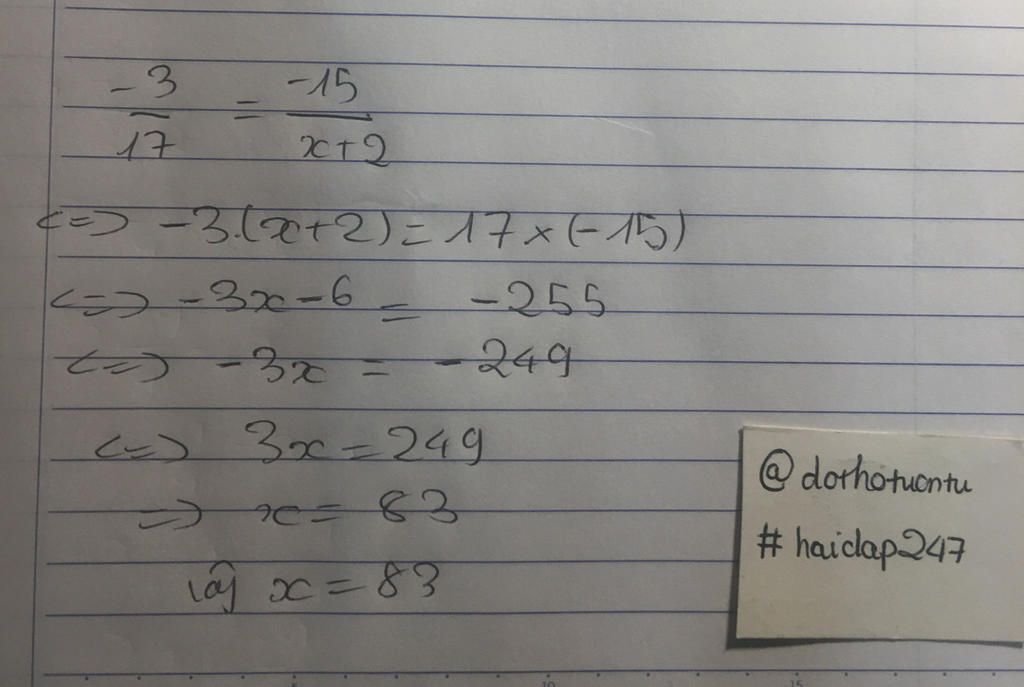 -3/17 = -15/x+2
<=> -3.(x+2) = 17 × (-15)
<=> -3x - 6 = -255
<=> -3x = -249
<=> 3x = 249
=> x = 83
Vậy x = 83
@dorhotuontu
# haidap247
5 10 15